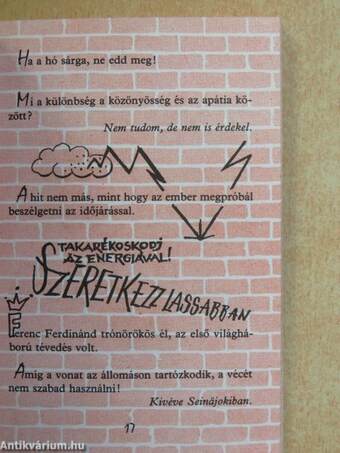 Ha a hó sárga, ne edd meg!
Mi a különbség a közönyösség és az apátia kö-
zött?
Nem tudom, de nem is érdekel.
A hit nem más, mint hogy az ember megpróbál
beszélgetni az időjárással.
TAKARÉKOSKODJ
AZ ENERGIÁVAL!
SZERETKEZZ LASSABBAN
Ferenc Ferdinánd trónörökös él, az első világhá-
ború tévedés volt.
Amíg a vonat az állomáson tartózkodik, a vécét
nem szabad használni!
Kivéve Seinäjokiban.
17
Antikvárium.hu